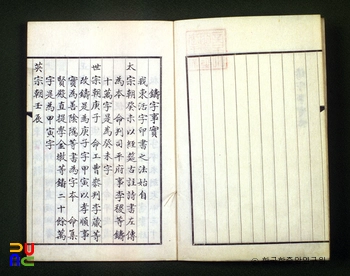 鑄字事實
我東活字印書之法始自
太宗朝癸未以經筵古註詩書左傳
爲本 命判司平府事李稷等鑄
十萬字是爲癸未字
世宗朝庚子 命工曹參判李蕆等
改鑄是爲庚子字甲寅以孝順事
實爲善陰隲等書爲字本 命集
賢殿直提學金墩等鑄二十餘萬
字是爲甲寅字
英宗朝壬辰
한국학중앙연구원